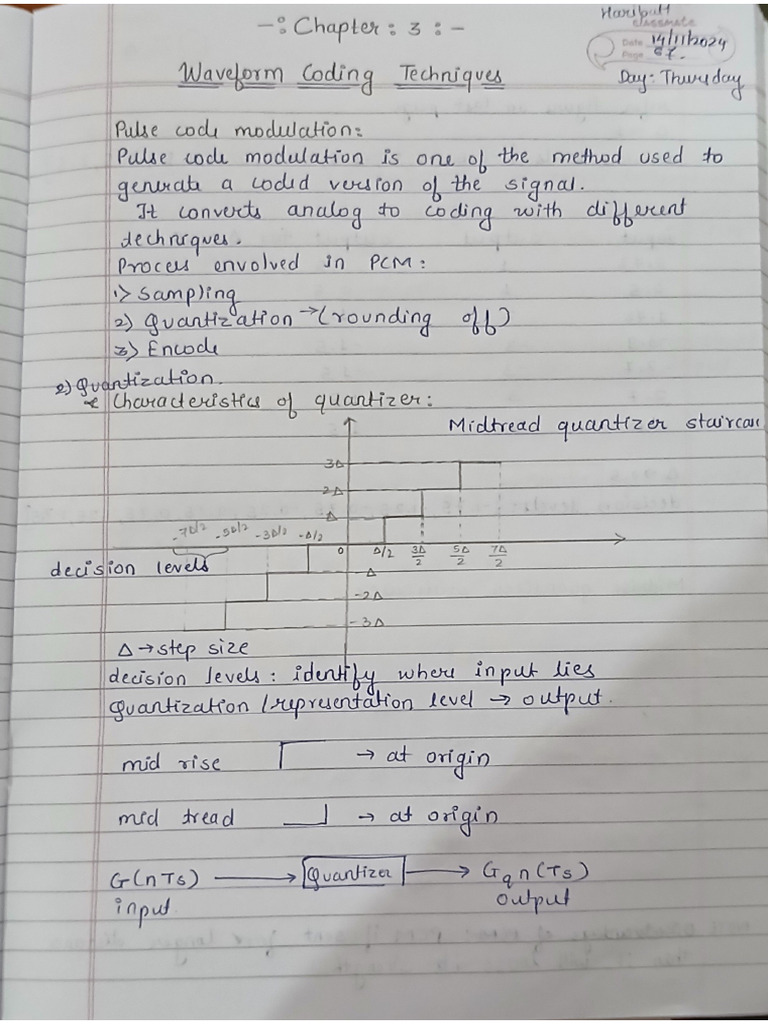 -: Chapter : 3 : -
classmate
Date 14/11/2024
Page 67.
Waveform Coding Techniques
Day: Thursday
Pulse code modulation:
Pulse code modulation is one of the method used to
generate a coded version of the signal.
It converts analog to coding with different
techniques.
Process envolved in PCM:
1) Sampling
2) Quantization → (rounding off)
3) Encode
2) Quantization.
* Characteristics of quantizer:
Midtread quantizer staircase
3Δ
2Δ
Δ
-7Δ/2 -5Δ/2 -3Δ/2 -Δ/2 0 Δ/2 3Δ/2 5Δ/2 7Δ/2
decision levels
-Δ
-2Δ
-3Δ
Δ → step size
decision levels : identify where input lies
Quantization / representation level → output.
mid rise → at origin
mid tread → at origin
G(nTs) → Quantizer → Gq n(Ts)
input output